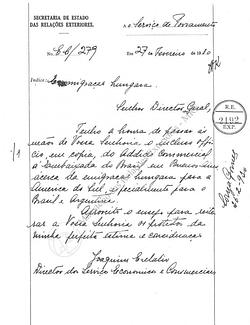 SECRETARIA DE ESTADO
DAS RELAÇÕES EXTERIORES.
Ao Serviço de Povoamento
No. EC/279
Em 27 de Fevereiro de 1920
Indice: Emmigração hungara.
Senhor Director Geral,
R. E.
2192
EXP.
Tenho a honra de passar ás
mãos de Vossa Senhoria o incluso offi-
cio, em copia, do Addido Commercial
á Embaixada do Brasil em Buenos Aires
acerca da emigração hungara para a
America do Sul, especialmente para o
Brasil e Argentina.
Aproveito o ensejo para reite-
rar a Vossa Senhoria os protestos da
minha perfeita estima e consideração
Joaquim
Director do Serviço Economico e Commercial